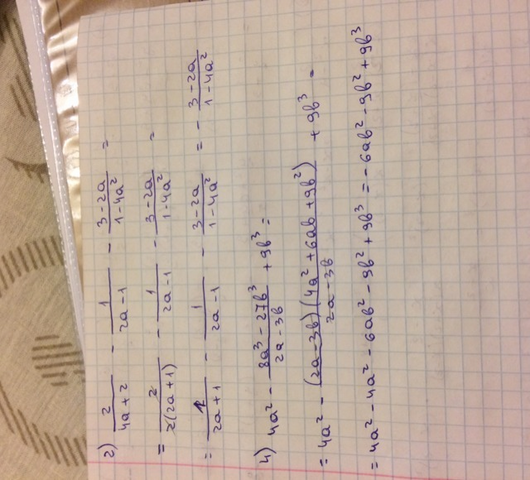 2) 2/(4a+2) - 1/(2a-1) - (3-2a)/(1-4a²) =
= 2/(2(2a+1)) - 1/(2a-1) - (3-2a)/(1-4a²) =
= 1/(2a+1) - 1/(2a-1) - (3-2a)/(1-4a²) = - (3-2a)/(1-4a²)
4) 4a² - (8a³-27b³)/(2a-3b) + 9b³ =
= 4a² - ((2a-3b)(4a²+6ab+9b²))/(2a-3b) + 9b³ =
= 4a² - 4a² - 6ab² - 9b² + 9b³ = -6ab² - 9b² + 9b³